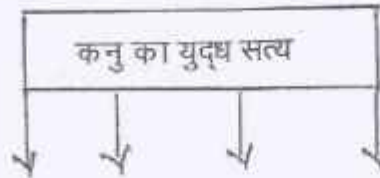 कनु का युद्ध सत्य